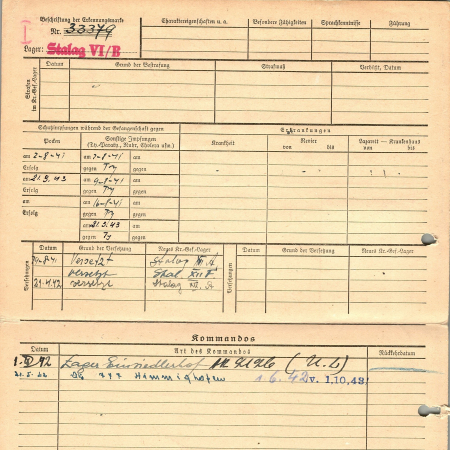 Beschriftung der Erkennungsmarke
Nr. 33379
I
Lager: Stalag VI/B
Charaktereigenschaften u. a.
Besondere Fähigkeiten
Sprachkenntnisse
Führung
Strafen im Kr.-Gef.-Lager
Datum
Grund der Bestrafung
Strafmaß
Verbüßt, Datum
Schutzimpfungen während der Gefangenschaft gegen
Erkrankungen
Pocken
Sonstige Impfungen
(Ty.-Paraty., Ruhr, Cholera usw.)
Krankheit
Revier
von bis
Lazarett — Krankenhaus
von bis
am 2-8-41 am 2-8-41 am
Erfolg gegen Ty gegen
am 21.9.43 am 9-8-41 am
Erfolg gegen Ty gegen
am am 16-8-41 am
Erfolg gegen Ty gegen
am 21.3.43 am
gegen Ty gegen
Versetzungen
Datum
Grund der Versetzung
Neues Kr.-Gef.-Lager
Versetzungen
Datum
Grund der Versetzung
Neues Kr.-Gef.-Lager
Versetzt Stalag
versetzt Stal. XII F.
21.4.42 versetzt Stalag XII A
Kommandos
Datum
Art des Kommandos
Rückkehrdatum
Lager Einsiedlerhof
1.6.42 v. 1.10.43